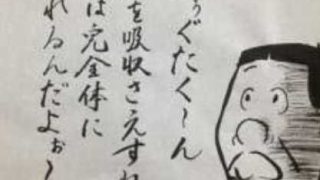 ぐたく〜ん
を吸収さえすれ
は完全体に
れるんだよぉ〜